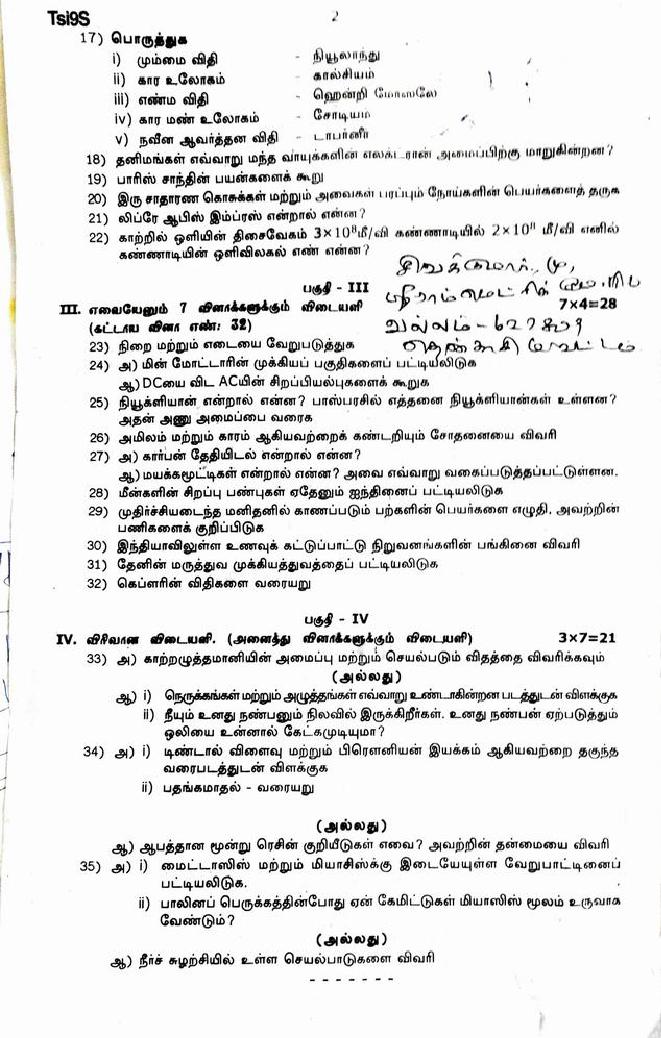 Tsi9S
2
17) பொருத்துக
i) மும்மை விதி - நியூலாந்து
ii) கார உலோகம் - கால்சியம்
iii) எண்ம விதி - ஹென்றி மோஸ்லே
iv) கார மண் உலோகம் - சோடியம்
v) நவீன ஆவர்த்தன விதி - டாபர்னீர்
18) தனிமங்கள் எவ்வாறு மந்த வாயுக்களின் எலக்ட்ரான் அமைப்பிற்கு மாறுகின்றன?
19) பாரிஸ் சாந்தின் பயன்களைக் கூறு
20) இரு சாதாரண கொசுக்கள் மற்றும் அவைகள் பரப்பும் நோய்களின் பெயர்களைத் தருக
21) லிப்ரே ஆபிஸ் இம்ப்ரஸ் என்றால் என்ன?
22) காற்றில் ஒளியின் திசைவேகம் 3×10⁸மீ/வி கண்ணாடியில் 2×10⁸ மீ/வி எனில்
கண்ணாடியின் ஒளிவிலகல் எண் என்ன?
பகுதி - III
III. எவையேனும் 7 வினாக்களுக்கும் விடையளி 7×4=28
(கட்டாய வினா எண்: 32)
வல்லம் - 627809
23) நிறை மற்றும் எடையை வேறுபடுத்துக
தென்காசி மாவட்டம்
24) அ) மின் மோட்டாரின் முக்கியப் பகுதிகளைப் பட்டியலிடுக
ஆ) DCயை விட ACயின் சிறப்பியல்புகளைக் கூறுக
25) நியூக்ளியான் என்றால் என்ன? பாஸ்பரசில் எத்தனை நியூக்ளியான்கள் உள்ளன?
அதன் அணு அமைப்பை வரைக
26) அமிலம் மற்றும் காரம் ஆகியவற்றைக் கண்டறியும் சோதனையை விவரி
27) அ) கார்பன் தேதியிடல் என்றால் என்ன?
ஆ) மயக்கமூட்டிகள் என்றால் என்ன? அவை எவ்வாறு வகைப்படுத்தப்பட்டுள்ளன.
28) மீன்களின் சிறப்பு பண்புகள் ஏதேனும் ஐந்தினைப் பட்டியலிடுக
29) முதிர்ச்சியடைந்த மனிதனில் காணப்படும் பற்களின் பெயர்களை எழுதி, அவற்றின்
பணிகளைக் குறிப்பிடுக
30) இந்தியாவிலுள்ள உணவுக் கட்டுப்பாட்டு நிறுவனங்களின் பங்கினை விவரி
31) தேனின் மருத்துவ முக்கியத்துவத்தைப் பட்டியலிடுக
32) கெப்ளரின் விதிகளை வரையறு
பகுதி - IV
IV. விரிவான விடையளி. (அனைத்து வினாக்களுக்கும் விடையளி) 3×7=21
33) அ) காற்றழுத்தமானியின் அமைப்பு மற்றும் செயல்படும் விதத்தை விவரிக்கவும்
(அல்லது)
ஆ) i) நெருக்கங்கள் மற்றும் அழுத்தங்கள் எவ்வாறு உண்டாகின்றன படத்துடன் விளக்குக
ii) நீயும் உனது நண்பனும் நிலவில் இருக்கிறீர்கள். உனது நண்பன் ஏற்படுத்தும்
ஒலியை உன்னால் கேட்கமுடியுமா?
34) அ) i) டிண்டால் விளைவு மற்றும் பிரௌனியன் இயக்கம் ஆகியவற்றை தகுந்த
வரைபடத்துடன் விளக்குக
ii) பதங்கமாதல் - வரையறு
(அல்லது)
ஆ) ஆபத்தான மூன்று ரெசின் குறியீடுகள் எவை? அவற்றின் தன்மையை விவரி
35) அ) i) மைட்டாஸிஸ் மற்றும் மியாசிஸ்க்கு இடையேயுள்ள வேறுபாட்டினைப்
பட்டியலிடுக.
ii) பாலினப் பெருக்கத்தின்போது ஏன் கேமிட்டுகள் மியாஸிஸ் மூலம் உருவாக
வேண்டும்?
(அல்லது)
ஆ) நீர்ச் சுழற்சியில் உள்ள செயல்பாடுகளை விவரி
- - - - - - -